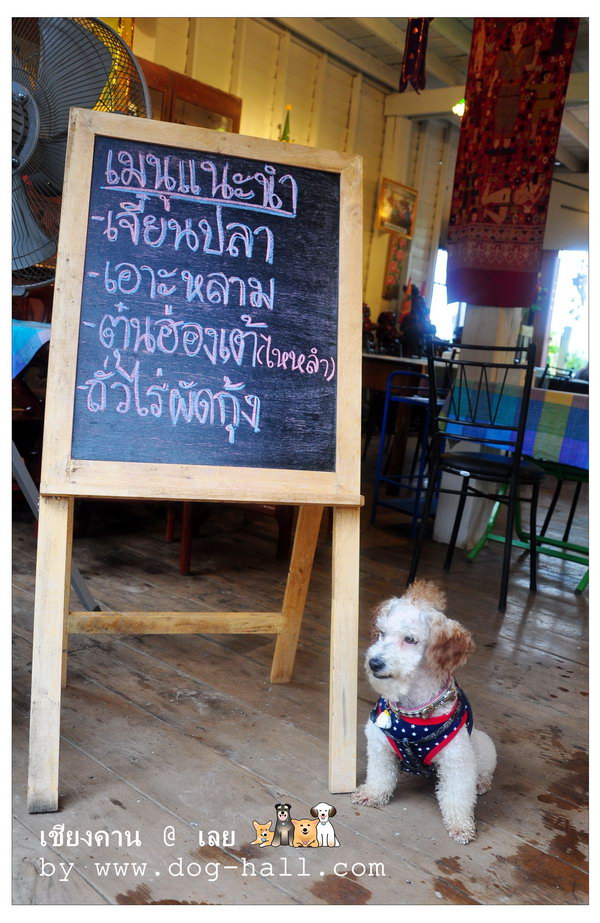 เมนูแนะนำ
-เจี๋ยนปลา
-เอาะหลาม
-ตุ๋นฮ่องเต้(ไหหลำ)
-ถั่วไร่ผัดกุ้ง
เชียงคาน @ เลย
by www.dog-hall.com